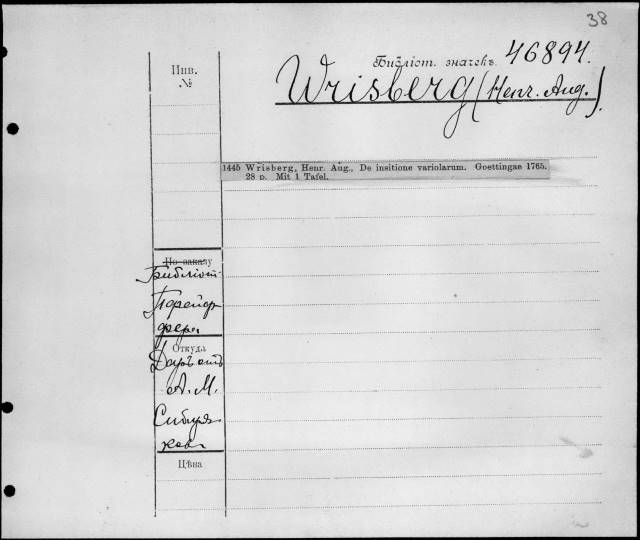 38
Инв.
№
Библіот. значекъ 46894.
Wrisberg (Henr. Aug.).
1445 Wrisberg, Henr. Aug., De insitione variolarum. Goettingae 1765.
28 p. Mit 1 Tafel.
По заказу
Библіот.
Пфейф-
фера
Откуда
Даръ отъ
А. М.
Сибиря-
кова
Цѣна